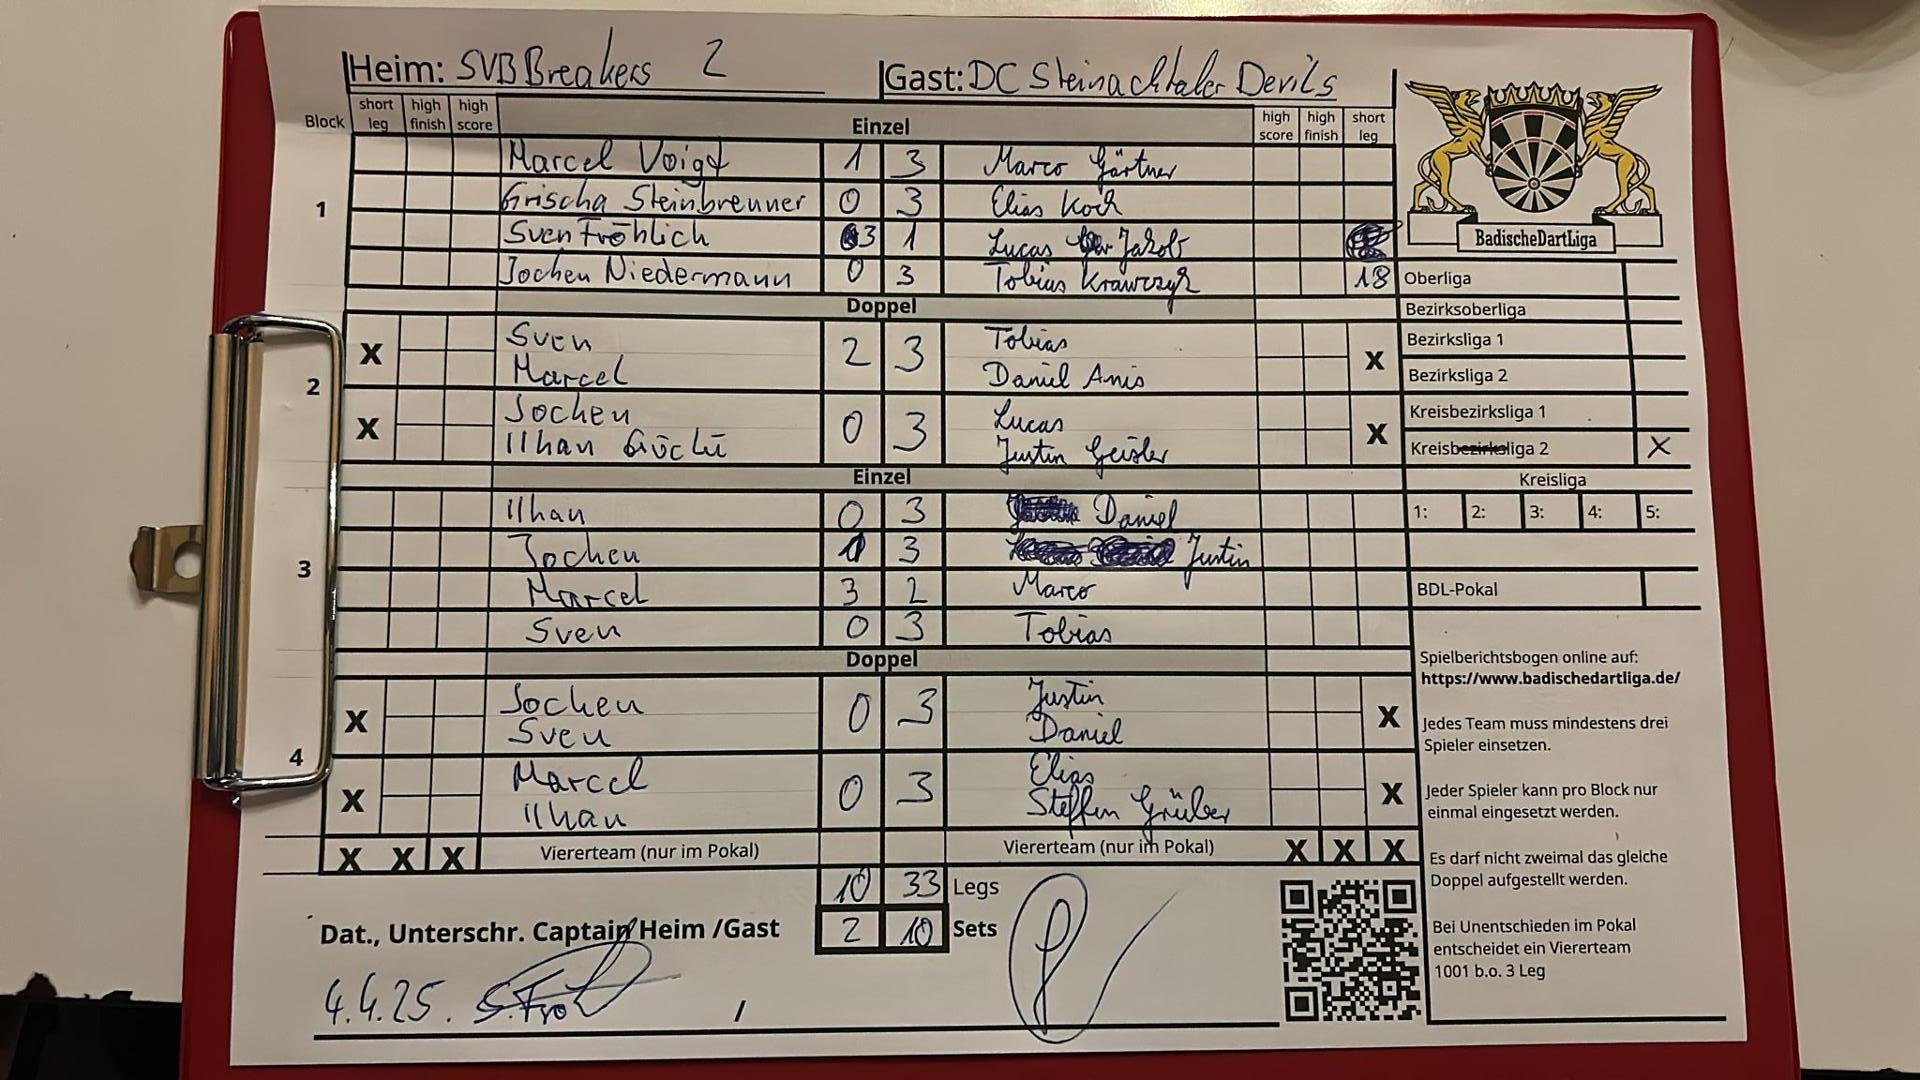 Heim: SVB Breakers 2 Gast: DC Steinachtaler Devils
Block short leg high finish high score Einzel high score high finish short leg
1
Marcel Voigt 1 3 Marco Gärtner
Grischa Steinbrenner 0 3 Elias Koch
Sven Fröhlich 3 1 Lucas Jakob
Jochen Niedermann 0 3 Tobias Krawczyk 18
Doppel
2
X Sven 2 3 Tobias X
Marcel Daniel Anis
X Jochen 0 3 Lucas X
Ilhan Güclü Justin Geisler
Einzel
3
Ilhan 0 3 Daniel
Jochen 1 3 Justin
Marcel 3 2 Marco
Sven 0 3 Tobias
Doppel
4
X Jochen 0 3 Justin X
Sven Daniel
X Marcel 0 3 Elias X
Ilhan Steffen Grüber
X X X Viererteam (nur im Pokal) Viererteam (nur im Pokal) X X X
10 33 Legs
Dat., Unterschr. Captain Heim /Gast 2 10 Sets
4.4.25. /
BadischeDartLiga
Oberliga
Bezirksoberliga
Bezirksliga 1
Bezirksliga 2
Kreisbezirksliga 1
Kreisbezirksliga 2 X
Kreisliga
1: 2: 3: 4: 5:
BDL-Pokal
Spielberichtsbogen online auf:
https://www.badischedartliga.de/
Jedes Team muss mindestens drei
Spieler einsetzen.
Jeder Spieler kann pro Block nur
einmal eingesetzt werden.
Es darf nicht zweimal das gleiche
Doppel aufgestellt werden.
Bei Unentschieden im Pokal
entscheidet ein Viererteam
1001 b.o. 3 Leg